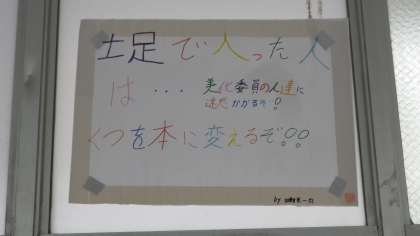 土足で入った人
は・・・
美化委員の人達に
迷惑かかるぞ!
くつを本に変えるぞ!!
by